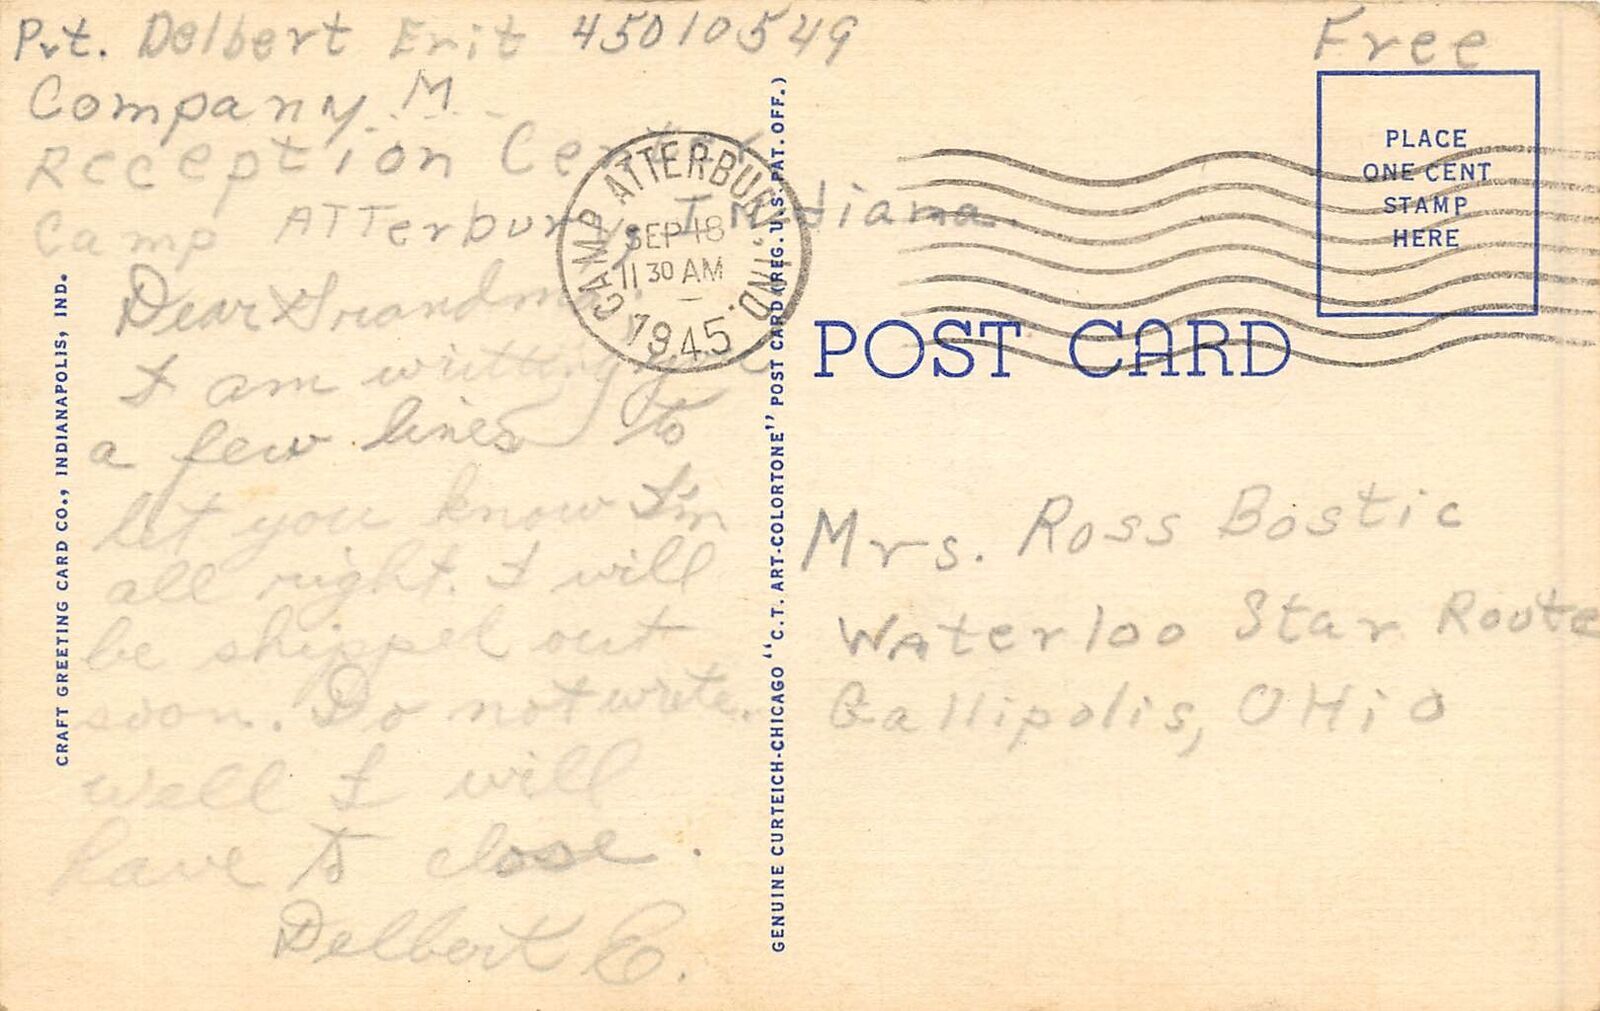 Pvt. Delbert Enit 45010549
Company M
Reception Center
Camp ATTerbury, Indiana.
Dear Grandma,
I am writting
a few lines to
let you know I'm
all right. I will
be shipped out
soon. Do not write.
well I will
have to close.
Delbert E.
CRAFT GREETING CARD CO., INDIANAPOLIS, IND.
CAMP ATTERBURY, IND.
SEP 18
11 30 AM
1945
GENUINE CURTEICH-CHICAGO "C.T. ART-COLORTONE" POST CARD (REG. U.S. PAT. OFF.)
Free
PLACE
ONE CENT
STAMP
HERE
POST CARD
Mrs. Ross Bostic
Waterloo Star Route
Gallipolis, OHiO